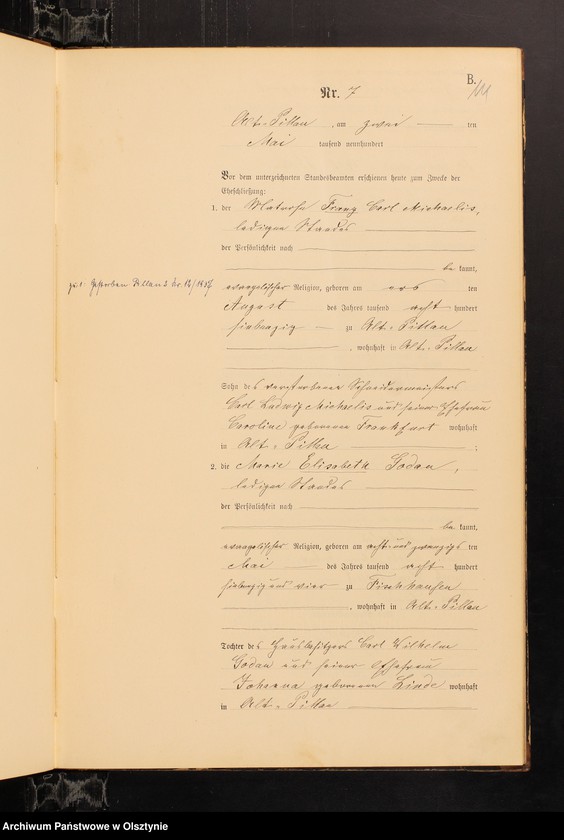 B.
111
Nr. 7
Alt-Pillau, am zwei ten
Mai tausend neunhundert
Vor dem unterzeichneten Standesbeamten erschienen heute zum Zwecke der
Eheschließung:
1. der Matrose Franz Carl Michaelis,
ledigen Standes
der Persönlichkeit nach
be kannt,
evangelischer Religion, geboren am ers ten
August des Jahres tausend acht hundert
siebenzig zu Alt-Pillau
, wohnhaft in Alt-Pillau
Sohn des verstorbenen Schneidermeisters
Carl Ludwig Michaelis und seiner Ehefrau
Caroline geborenen Frankfurt wohnhaft
in Alt-Pillau ;
2. die Marie Elisabeth Godau,
ledigen Standes
der Persönlichkeit nach
be kannt,
evangelischer Religion, geboren am acht und zwanzigs ten
Mai des Jahres tausend acht hundert
siebenzig und vier zu Fischhausen
, wohnhaft in Alt-Pillau
Tochter des Hausbesitzers Carl Wilhelm
Godau und seiner Ehefrau
Johanna geborenen Linde wohnhaft
in Alt-Pillau
gestorben Pillau
Archiwum Państwowe w Olsztynie